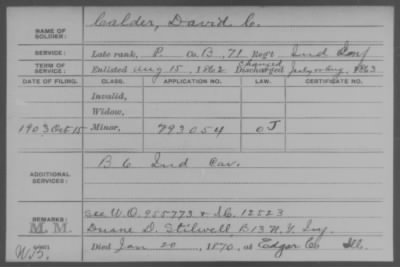 NAME OF SOLDIER: Calder, David C.
SERVICE: Late rank, P Co. B - 71 Reg't Ind Inf
TERM OF SERVICE: Enlisted Aug 15, 1862 Changed Discharged July or Aug, 1863
DATE OF FILING. CLASS. APPLICATION NO. LAW. CERTIFICATE NO.
Invalid,
Widow,
1903 Oct 15 Minor, 793054 OJ
B 6 Ind Cav.
ADDITIONAL SERVICES:
REMARKS: See W.O. 955773 & I.C. 12523
M. M. Duane D. Stilwell, B 13 N.Y. Inf.
Died Jan 20, 1870, at Edgar Co Ill.